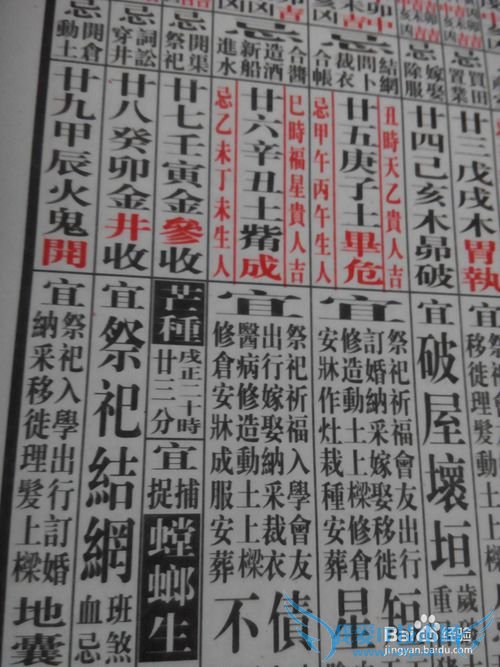 忌
買田
置業
廿三戊戌木胃執
忌
嫁娶
除服
廿四己亥木昴破
宜
破屋壞垣
歲
重
忌
結網
問卜
裁衣
合帳
丑時天乙貴人吉
廿五庚子土畢危
忌甲午丙午生人
宜
祭祀祈福會友出行
訂婚納采嫁娶移徙
修造動土上樑修倉
安牀作灶栽種安葬
短星
忌
合醬
造酒
新船
進水
巳時福星貴人吉
廿六辛丑土觜成
忌乙未丁未生人
宜
祭祀祈福入學會友
出行嫁娶納采裁衣
醫病修造動土上樑
修倉安牀成服安葬
債不
忌
開渠
祭祀
廿七壬寅金參收
芒種
戌正二十時
廿三分
宜
捕捉
螳螂生
忌
詞訟
穿井
廿八癸卯金井收
宜
祭祀結網
班煞
血忌
忌
開倉
動土
廿九甲辰火鬼開
宜
祭祀入學出行訂婚
納采移徙理髮上樑
地囊
Baidu经验
jingyan.baidu.com